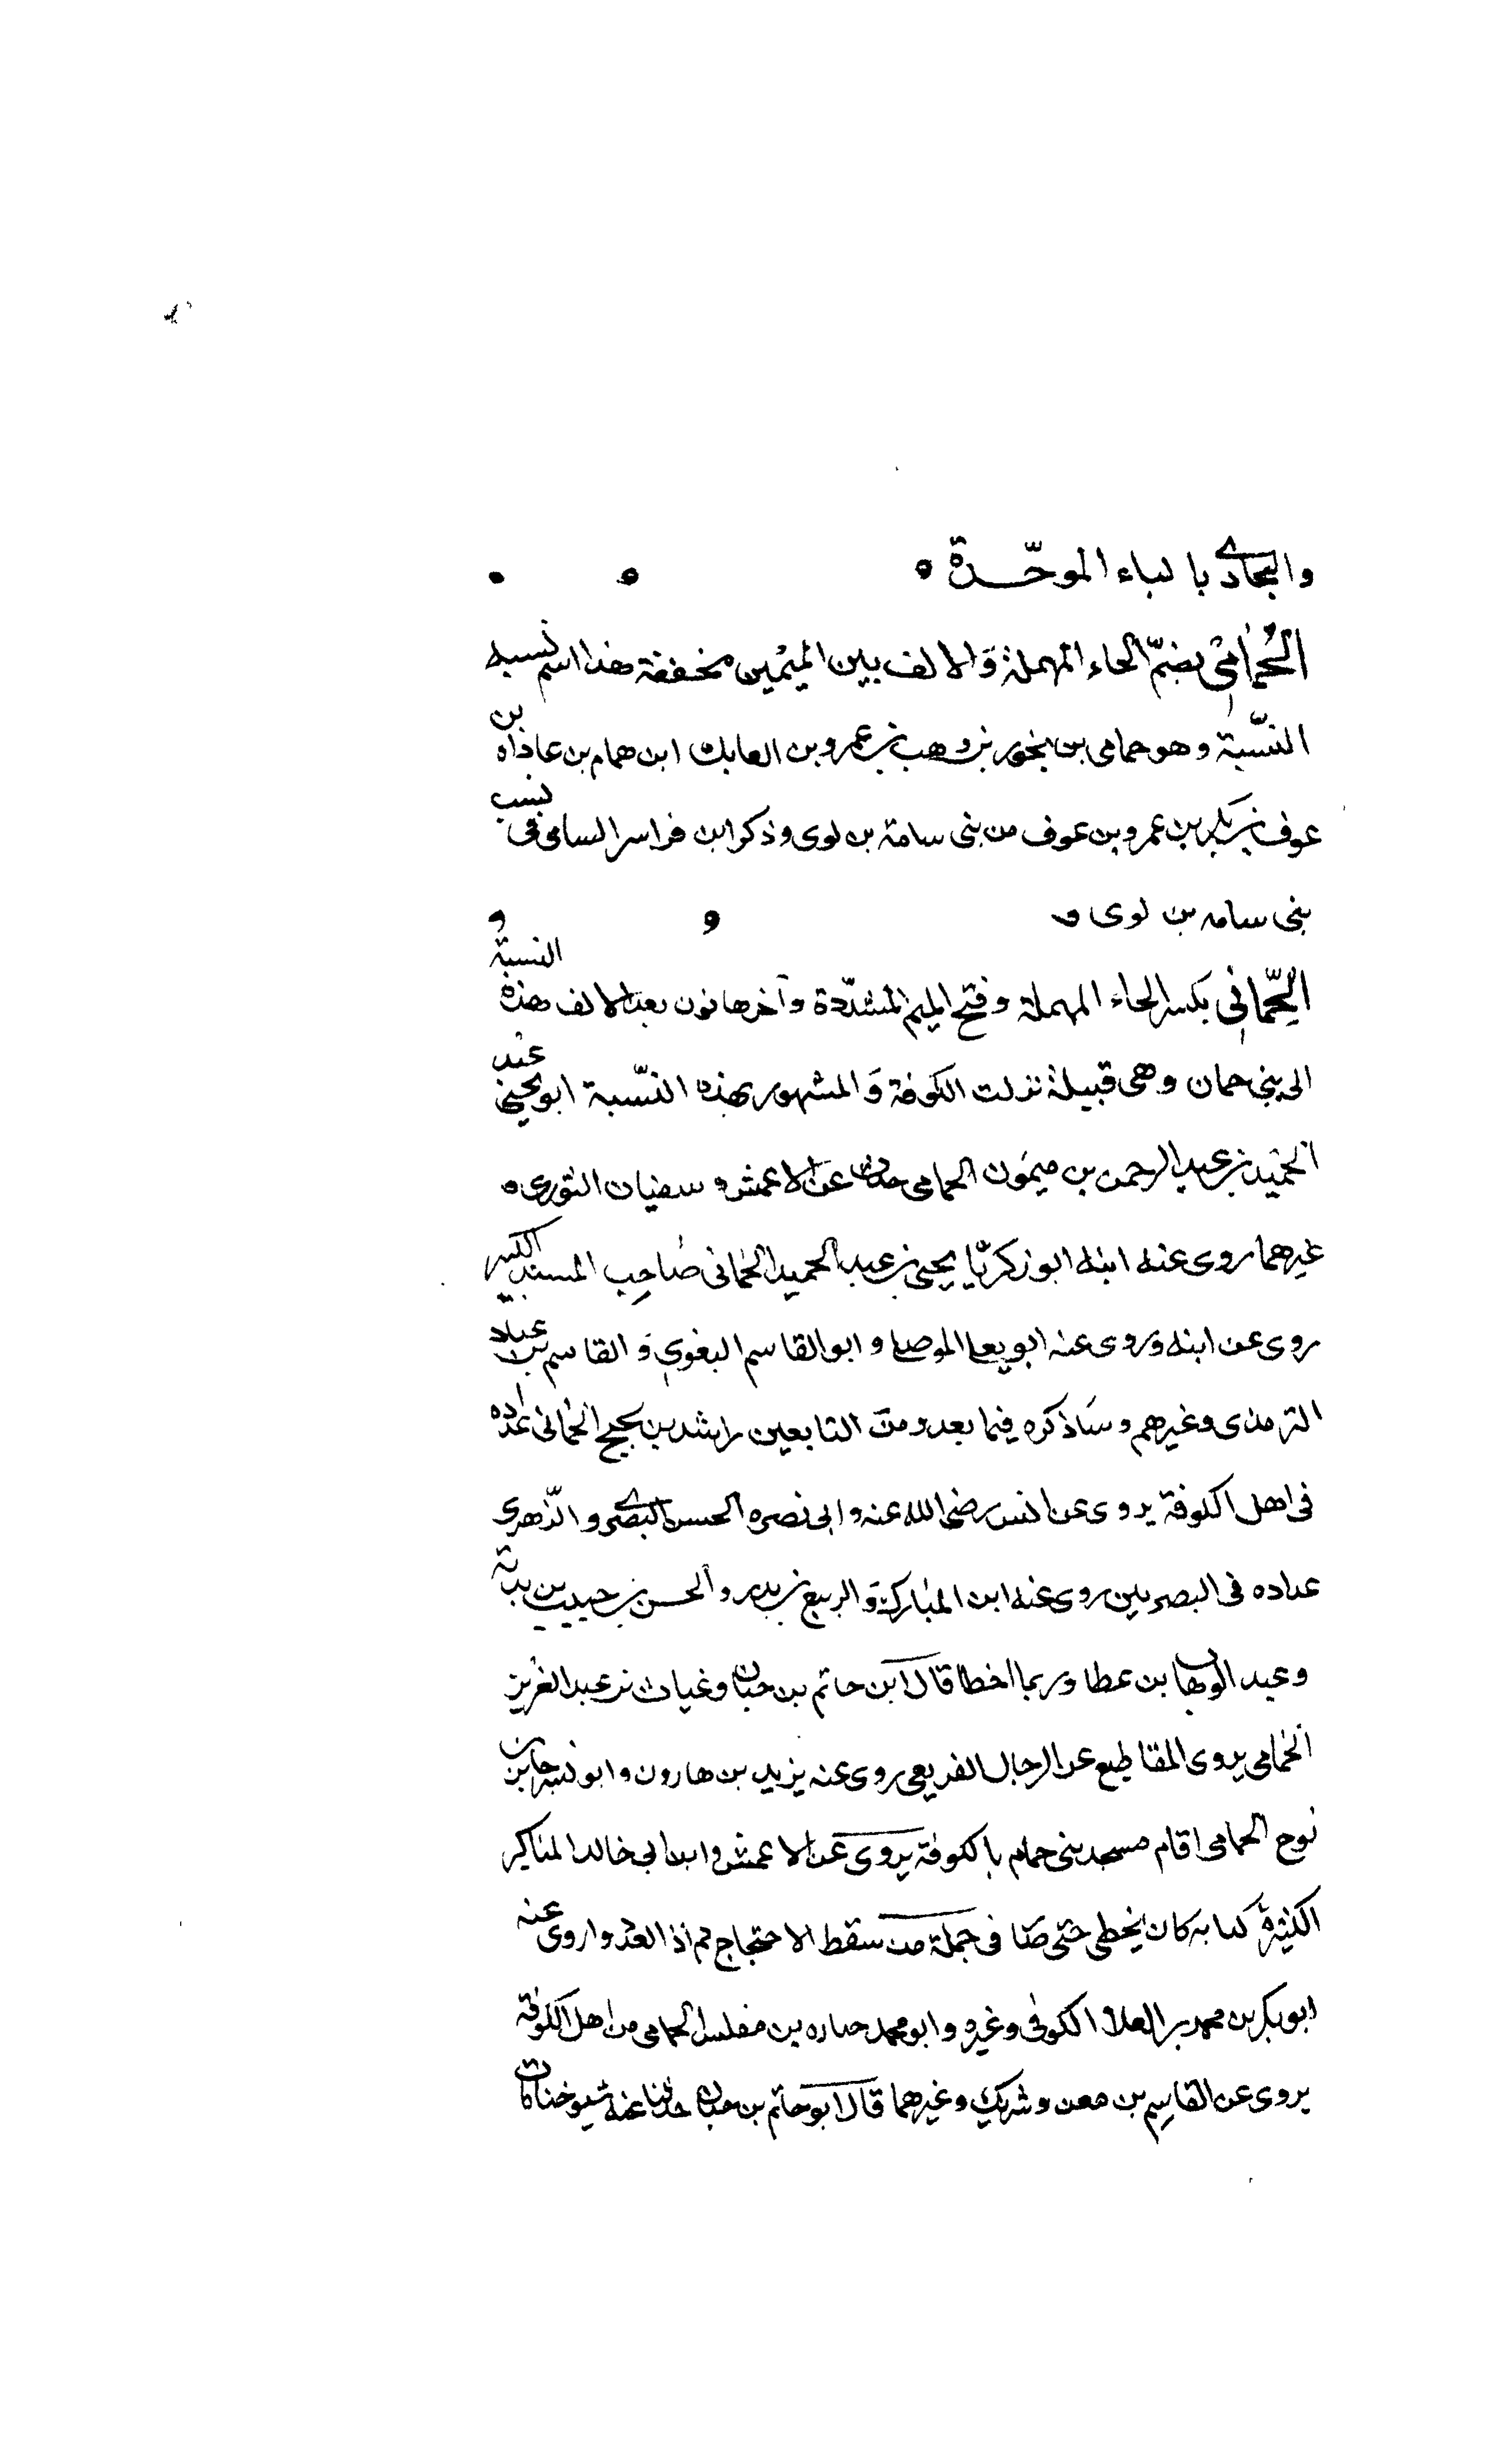 والبجادى بالباء الموحّدة
الحُمامى بضمّ الحاء المهملة والالف بين الميمين مخففة هذا اسم نسبه
النسّبة وهو حمامى بن بن وهب بن عمرو بن ابن همام بن بن
عوف بن بكر بن عمرو بن عوف من بنى سامة بن لوى وذكر ابن فراس السامى فى نسب
بنى سامه بن لوى
الحِمّانى بكسر الحاء المهملة وفتح الميم المشدّدة وآخرها نون بعد الالف هذه النسبة
الى بنى حمان وهى قبيلة نزلت الكوفة والمشهور بهذه النسّبة ابو يحيى عبد
الحميد بن عبد الرحمن بن ميمون الحمامى حدث عن الاعمش و سفيان الثورى و
غيرهما روى عنه ابنه ابو زكريّا يحيى بن عبد الحميد الحمانى صاحب المسند الكبير
روى عن ابنه وروى عنه ابو يعلى الموصلى و ابو القاسم البغوى و القاسم بن عباد
الترمذى وغيرهم وساذكره فيما بعد ومن التابعين راشد بن نجيح الحمانى عداده
فى اهل الكوفة يروى عن انس رضى الله عنه و ابى نصره الحسن البصرى و الزّهرى
عداده فى البصريين روى عنه ابن المبارك و الربيع بن بدر و الحسن بن حبيب بن ندبة
وعبد الوهاب بن عطا وربما اخطا قال ابن حاتم بن حبان وغياث بن عبد العزيز
الحمامى يروى المقاطيع عن الرجال روى عنه يزيد بن هارون و ابو بن
نوح الحمامى اقام مسجد بنى حمام بالكوفة يروى عن الاعمش وابن ابى خالد المناكير
الكثيرة كان يخطى حتى صار فى جملة من سقط الاحتجاج بهم اذا انفردوا روى عنه
ابو بكر بن محمد بن العلا الكوفى وغيره و ابو محمد جباره بن مغلس الحمامى من اهل الكوفة
يروى عن القاسم بن معن و شريك وغيرهما قال ابو حاتم بن حبان حدثنا عنه شيوخنا كان